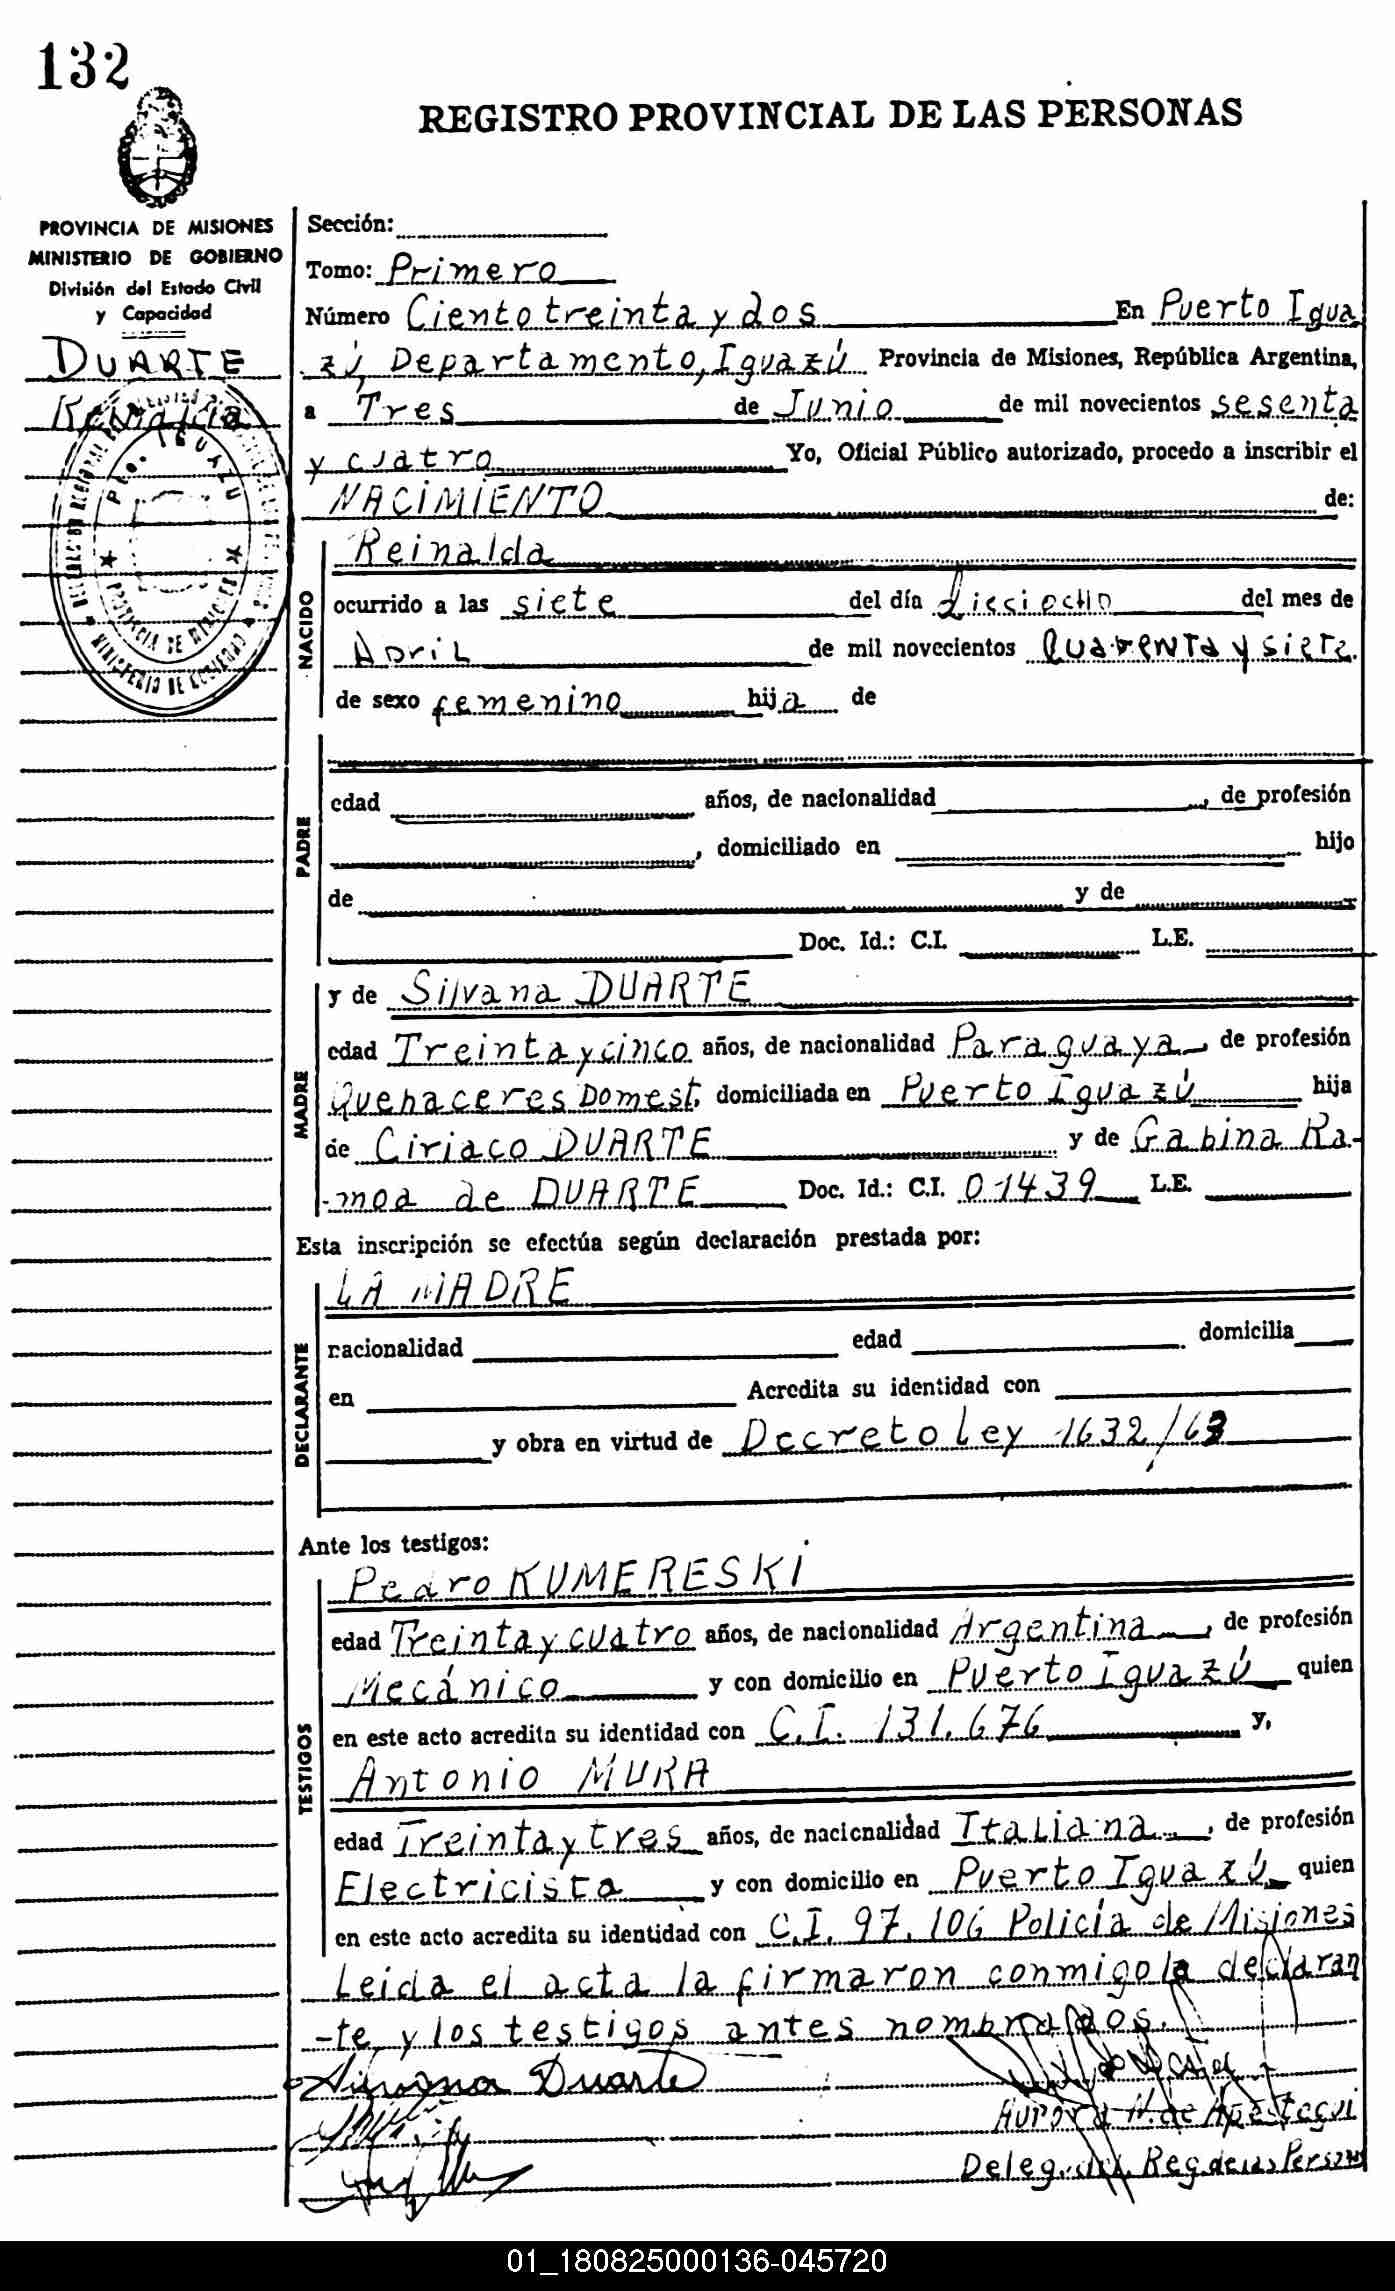 132
REGISTRO PROVINCIAL DE LAS PERSONAS
PROVINCIA DE MISIONES
MINISTERIO DE GOBIERNO
División del Estado Civil
y Capacidad
DUARTE
Reinalda
PTO. IGUAZU
PROVINCIA DE MISIONES
MINISTERIO DE GOBIERNO
Sección:
Tomo: Primero
Número Ciento treinta y dos En Puerto Igua
zú, Departamento, Iguazú Provincia de Misiones, República Argentina,
a Tres de Junio de mil novecientos sesenta
y cuatro Yo, Oficial Público autorizado, procedo a inscribir el
NACIMIENTO de:
NACIDO
Reinalda
ocurrido a las siete del día dieciocho del mes de
Abril de mil novecientos Cuarenta y siete.
de sexo femenino hija de
PADRE
edad años, de nacionalidad , de profesión
, domiciliado en hijo
de y de
Doc. Id.: C.I. L.E.
MADRE
y de Silvana DUARTE
edad Treinta y cinco años, de nacionalidad Paraguaya, de profesión
Quehaceres Domest. domiciliada en Puerto Iguazú hija
de Ciriaco DUARTE y de Gabina Ra-
-moa de DUARTE Doc. Id.: C.I. 01439 L.E.
Esta inscripción se efectúa según declaración prestada por:
DECLARANTE
LA MADRE
nacionalidad edad domicilia
en Acredita su identidad con
y obra en virtud de Decreto Ley 1632/63
Ante los testigos:
TESTIGOS
Pedro KUMERESKI
edad Treinta y cuatro años, de nacionalidad Argentina, de profesión
Mecánico y con domicilio en Puerto Iguazú quien
en este acto acredita su identidad con C.I. 131.676 y,
Antonio MURA
edad Treinta y tres años, de nacionalidad Italiana, de profesión
Electricista y con domicilio en Puerto Iguazú quien
en este acto acredita su identidad con C.I. 97.106 Policía de Misiones
Leida el acta la firmaron conmigo la declaran
-te y los testigos antes nombrados.
Silvana Duarte
Aurora N. de Apestegui
Deleg. del Reg. de las Personas
01_180825000136-045720